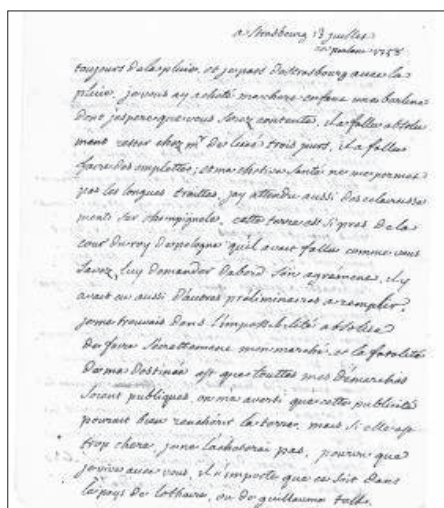 a strasbourg 13 juillet
en partant 1758
toujours de la pluie, et je pars de strasbourg avec la
pluie, je vous ay acheté ma chere enfant une berline
dont j'espere que vous serez contente, il a fallu absolu
ment rester chez mr de trois jours, il a fallu
faire des emplettes; et ma chetive santé ne me permet
pas les longues traittes, jay attendu aussi des eclaircisse
ments sur champignele, cette terre est si pres de la
cour du roy de pologne qu'il avait fallu comme vous
savez, luy demander dabord son agrement, il y
avait eu aussi d'autres préliminaires a remplir.
je me trouvais dans l'impossibilité absolue
de faire secrettement mon marché, et la fatalité
de ma destinée est que touttes mes démarches
soient publiques, on ma averti que cette publicité
pourait bien rencherir la terre, mais si elle est
trop chere, je ne l'acheterai pas, pourvu que
je vive avec vous, il n'importe que ce soit dans
le pays de lothaire, ou de guillaume tell.